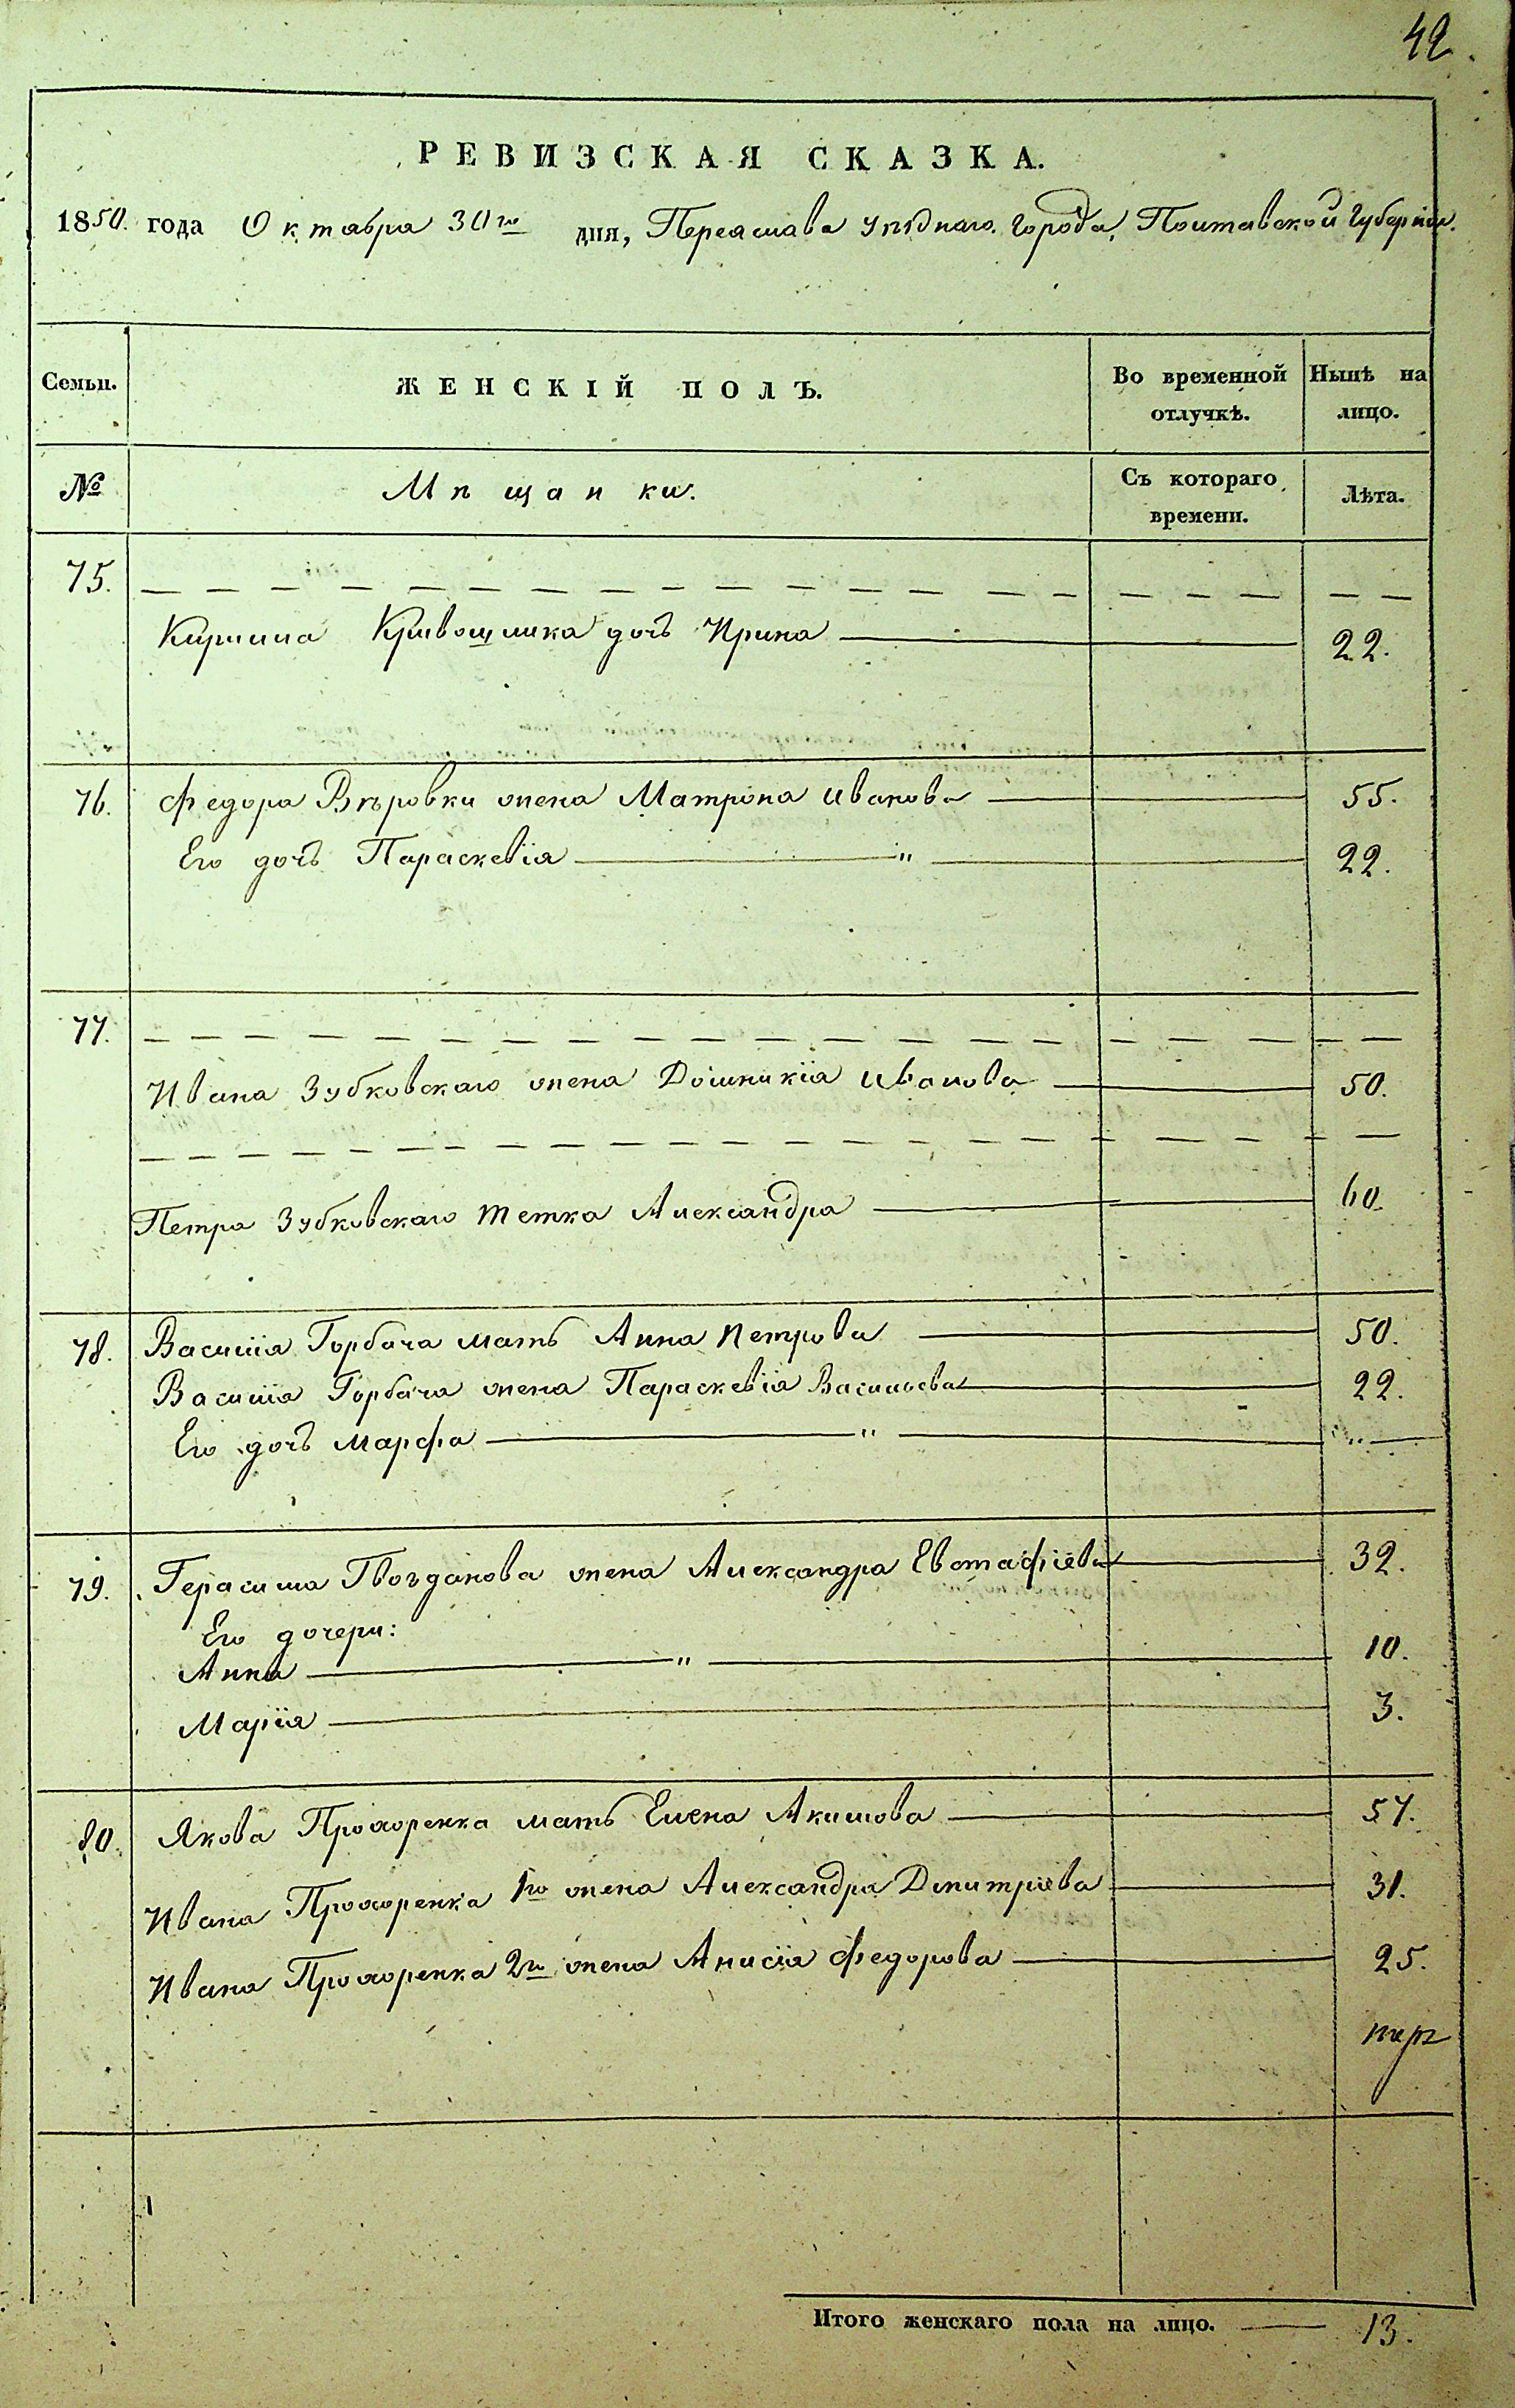 42.
РЕВИЗСКАЯ СКАЗКА.
1850. года Октабра 30го дня, Переаслава Уѣзднаго Города, Полтавской Губерніи.
Семьи.
ЖЕНСКІЙ ПОЛЪ.
Во временной отлучкѣ.
Нынѣ на лицо.
№
Мѣщанки.
Съ котораго времени.
Лѣта.
75.
Кирилла Кривошлика дочь Ирина 22.
76. Федора Вѣровки жена Матрона Иванова 55.
Его дочь Параскевія " 22.
77.
Ивана Зубковскаго жена Домникія Иванова 50.
Петра Зубковскаго тетка Александра 60.
78. Василія Горбача мать Анна Петрова 50.
Василія Горбача жена Параскевія Васильева 22.
Его дочь Марфа " "
79. Герасима Гвозданова жена Александра Евстафіева 32.
Его дочери:
Анна " 10.
Марія 3.
80. Якова Прохоренка мать Елена Акимова 57.
Ивана Прохоренка 1го жена Александра Дмитріева 31.
Ивана Прохоренка 2го жена Анисія Федорова 25.
Итого женскаго пола на лицо. 13.